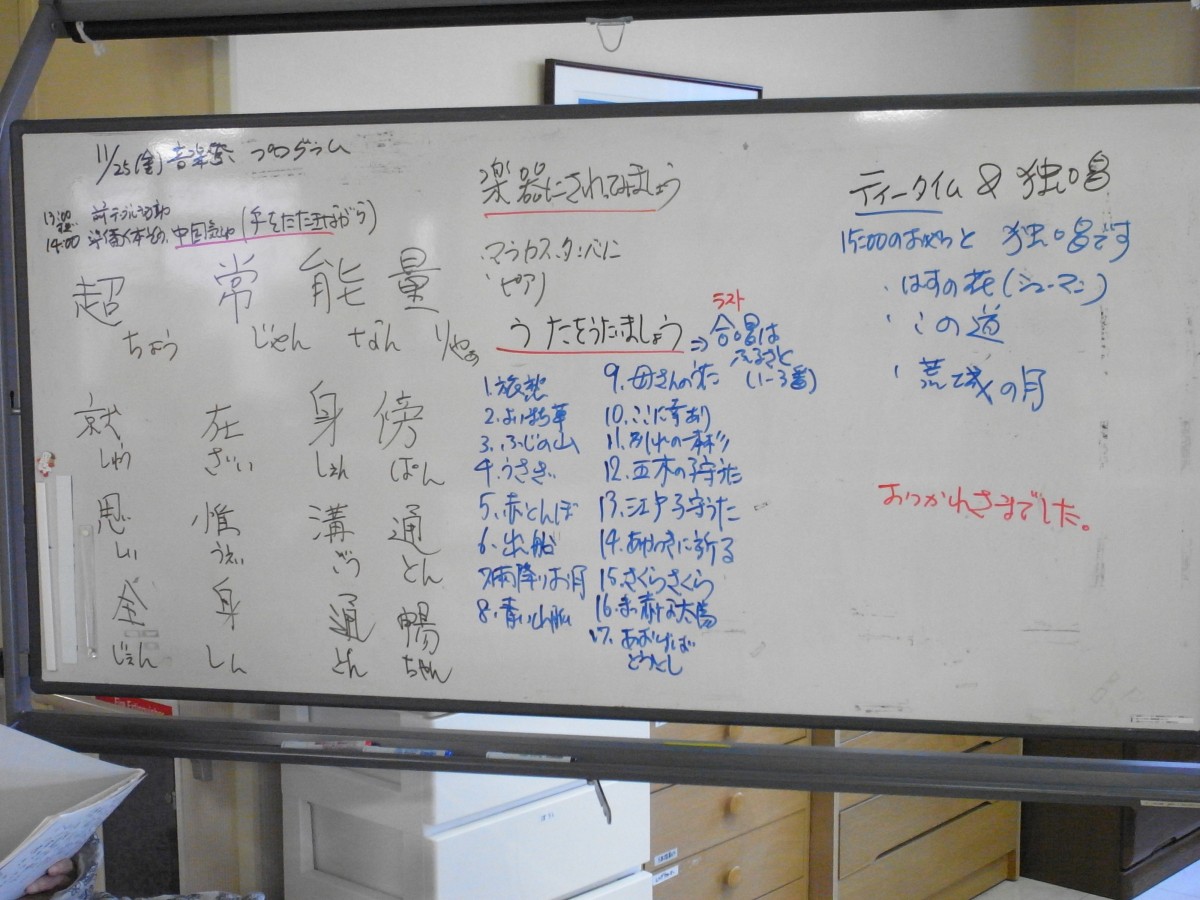 11/25(金)音楽祭 プログラム
13:00
14:00 準備体操 中国気功(手をたたきながら)
超 常 能 量
ちょう じゃん なん りゃぁ
就 在 身 傍
しゅう ざい しぇん ぱん
思 惟 溝 通
しい うぇい ごう とん
全 身 通 暢
じぇん しん とん ちゃん
楽器にふれてみましょう
・マラカス・タンバリン
・ピアノ
うたをうたいましょう
⇒ ラスト
合唱は
ふるさと
(1~3番)
1.旅愁
2.よいまち草
3.ふじの山
4.うさぎ
5.赤とんぼ
6.出船
7.雨降りお月
8.青い山脈
9.母さんの歌
10.ここに幸あり
11.別れの一本杉
12.五木の子守うた
13.江戸子守うた
14.あかつきに祈る
15.さくらさくら
16.まっ赤な太陽
17.あおげば
とうとし
ティータイム & 独唱
15:00のおやつと 独唱です
・はすの花(シューマン)
・この道
・荒城の月
おつかれさまでした。